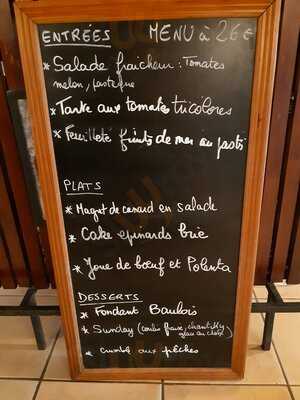 ENTRÉES MENU à 26€
* Salade fraicheur : Tomates
melon, pasteque
* Tarte aux tomates tricolores
* Feuilleté fruits de mer au pastis
PLATS
* Magret de canard en salade
* Cake epinards brie
* Joue de bœuf et Polenta
DESSERTS
* Fondant Baulois
* Sunday (coulis fraise, chantilly
glace au choix)
* crumble aux pêches